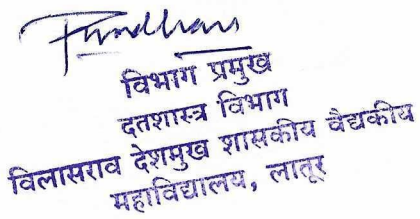 विभाग प्रमुख
दतशास्त्र विभाग
विलासराव देशमुख शासकीय वैद्यकीय
महाविद्यालय, लातूर